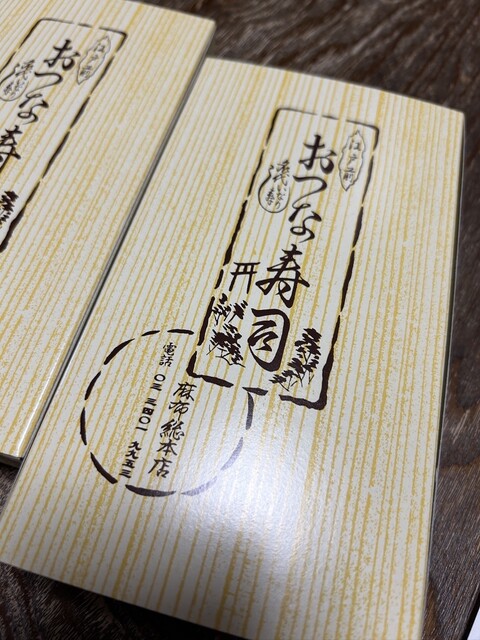 江戸前
おつな寿司
元祖いなり寿し
麻布総本店
電話 〇三 三四〇一 九九五三
江戸前
おつな寿